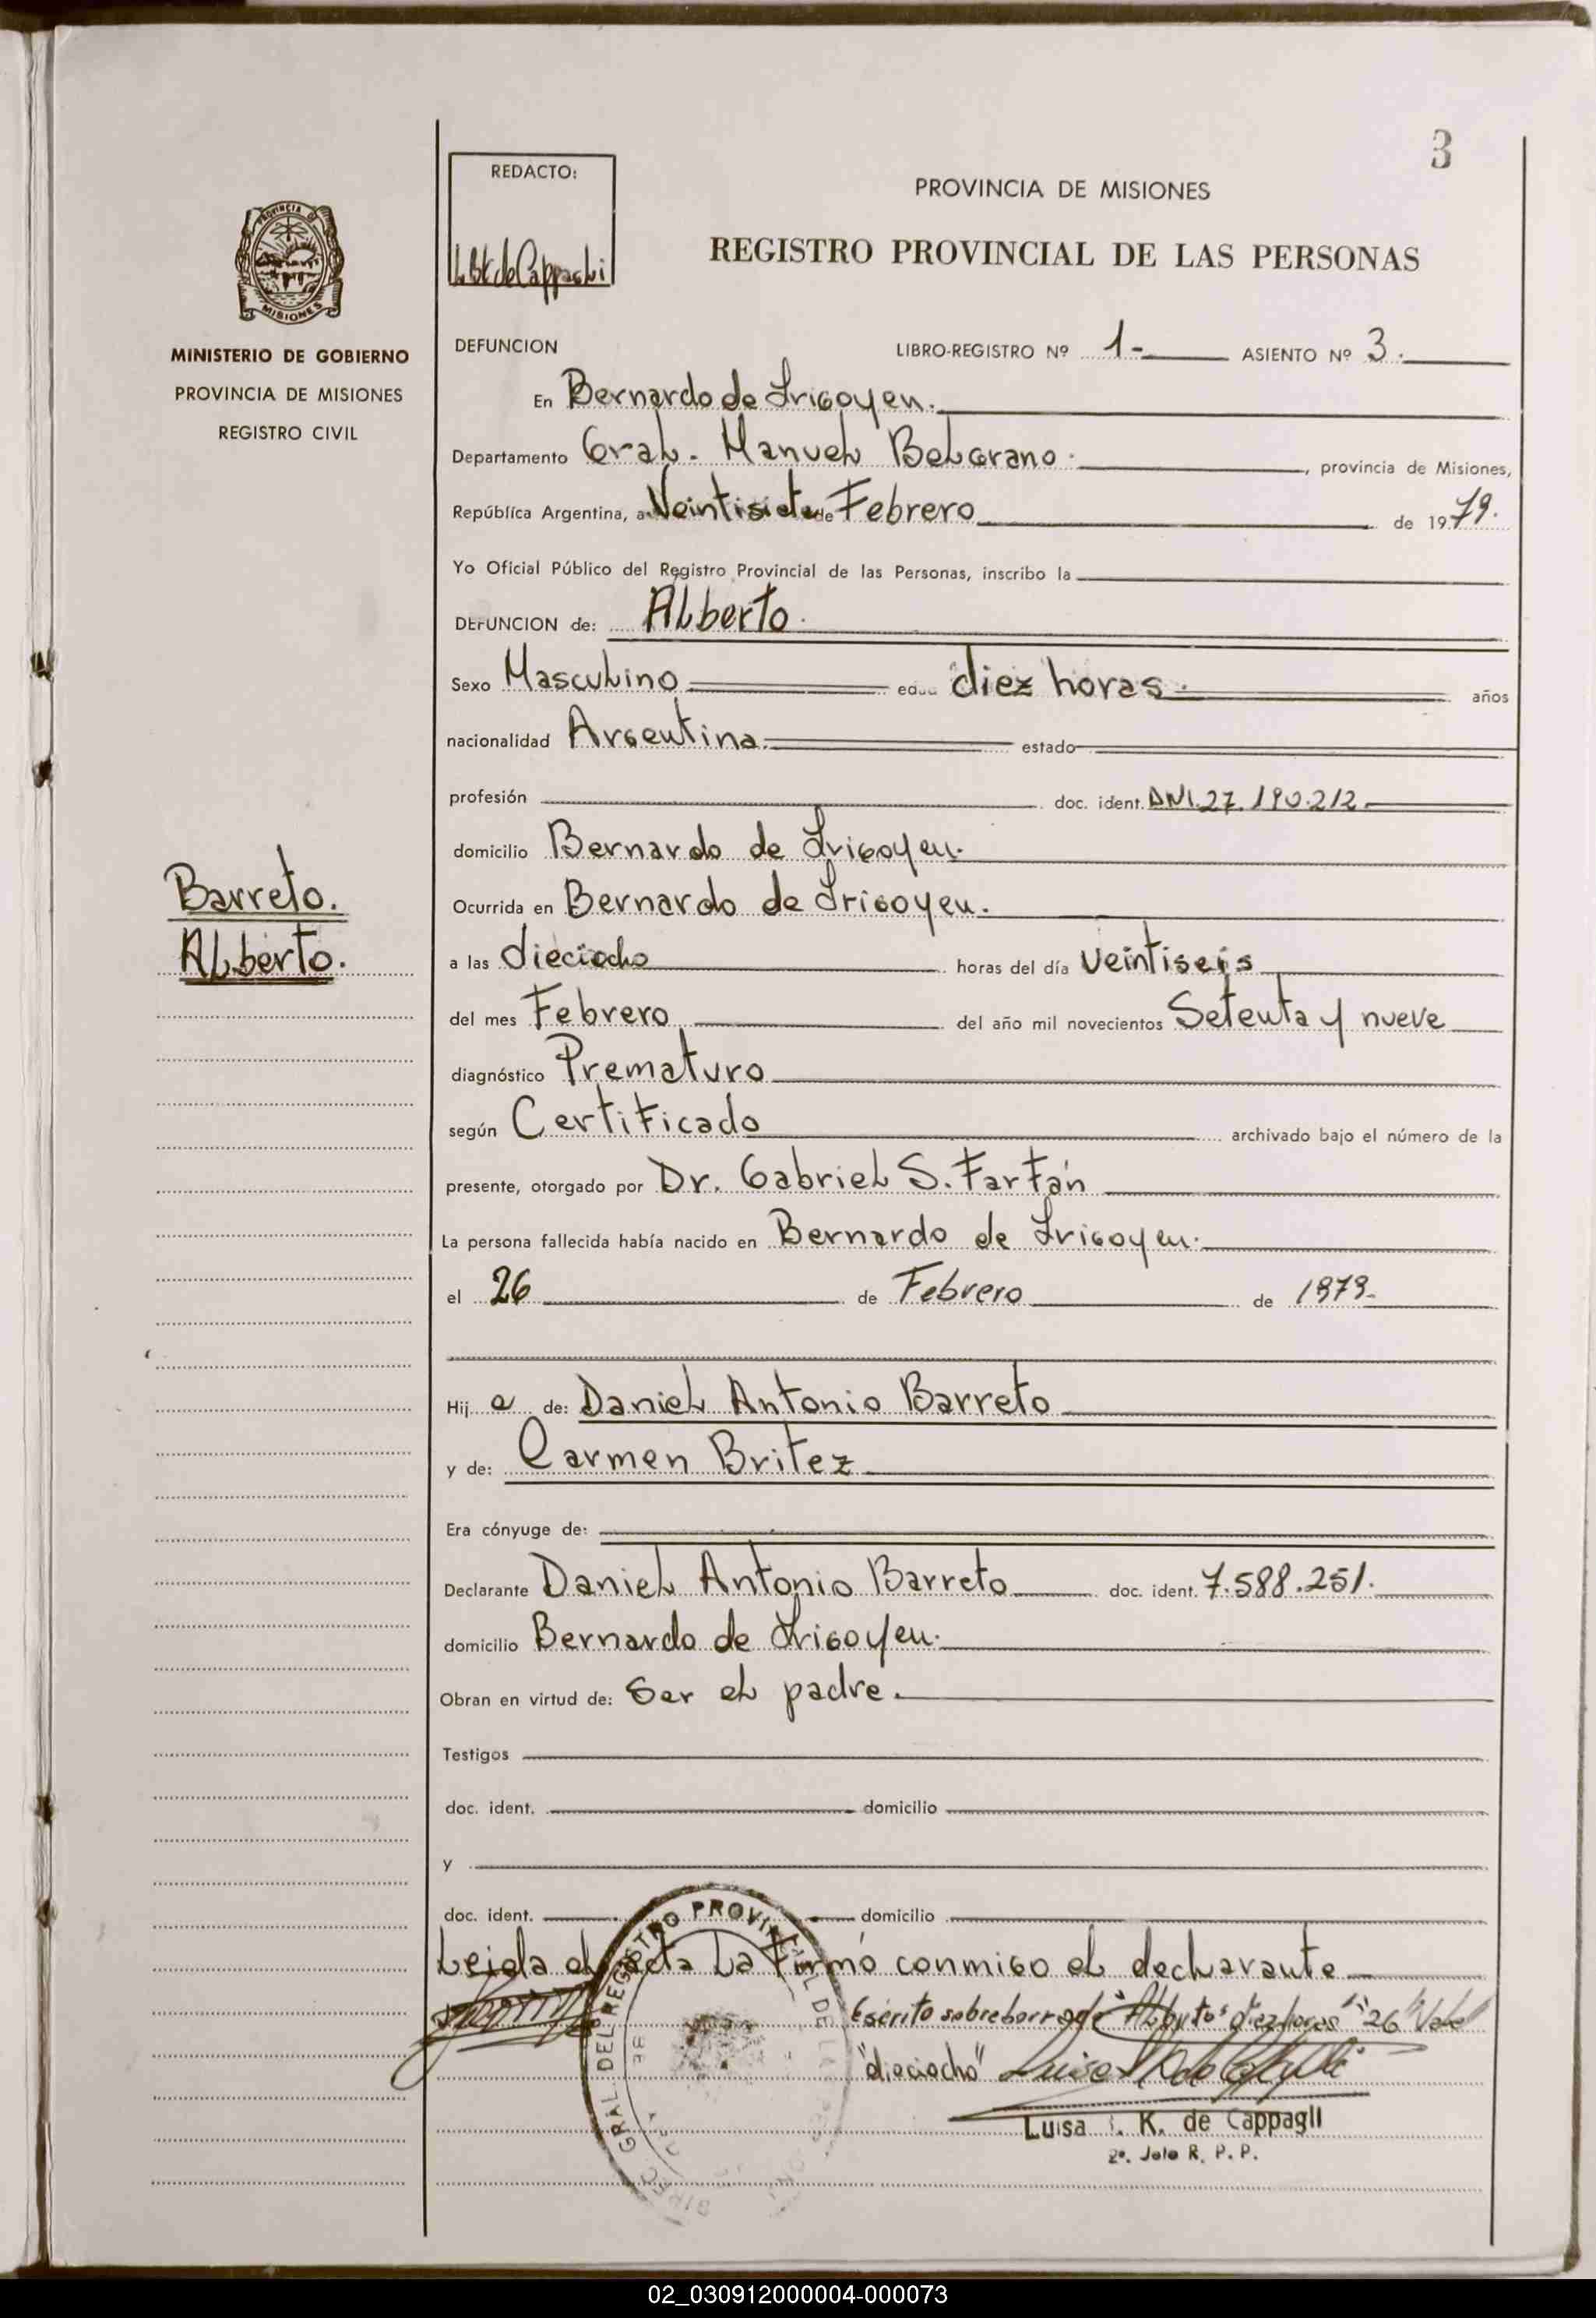 3
REDACTO:
PROVINCIA DE MISIONES
REGISTRO PROVINCIAL DE LAS PERSONAS
PROVINCIA DE
MISIONES
MINISTERIO DE GOBIERNO
PROVINCIA DE MISIONES
REGISTRO CIVIL
de Cappagli
DEFUNCION LIBRO-REGISTRO Nº 1- ASIENTO Nº 3.
En Bernardo de Irigoyen.
Departamento Gral. Manuel Belgrano. , provincia de Misiones,
República Argentina, a Veintisiete de Febrero de 1979.
Yo Oficial Público del Registro Provincial de las Personas, inscribo la
DEFUNCION de: Alberto.
Sexo Masculino edad diez horas. años
nacionalidad Argentina. estado
profesión doc. ident. DNI.27.190.212
domicilio Bernardo de Irigoyen.
Barreto.
Alberto.
Ocurrida en Bernardo de Irigoyen.
a las dieciocho horas del día Veintiseis
del mes Febrero del año mil novecientos Setenta y nueve
diagnóstico Prematuro
según Certificado archivado bajo el número de la
presente, otorgado por Dr. Gabriel S. Farfán
La persona fallecida había nacido en Bernardo de Irigoyen.
el 26 de Febrero de 1979.
Hij o de: Daniel Antonio Barreto
y de: Carmen Britez
Era cónyuge de:
Declarante Daniel Antonio Barreto doc. ident. 7.588.251.
domicilio Bernardo de Irigoyen.
Obran en virtud de: Ser el padre.
Testigos
doc. ident. domicilio
y
doc. ident. domicilio
Leida el acta la firmó conmigo el declarante
Escrito sobreborrado "Alberto" "diez horas" "26" Vale
"dieciocho"
Luisa K. de Cappagli
2º. Jefe R. P. P.
GRAL. DEL REGISTRO PROVINCIAL DE
02_030912000004-000073